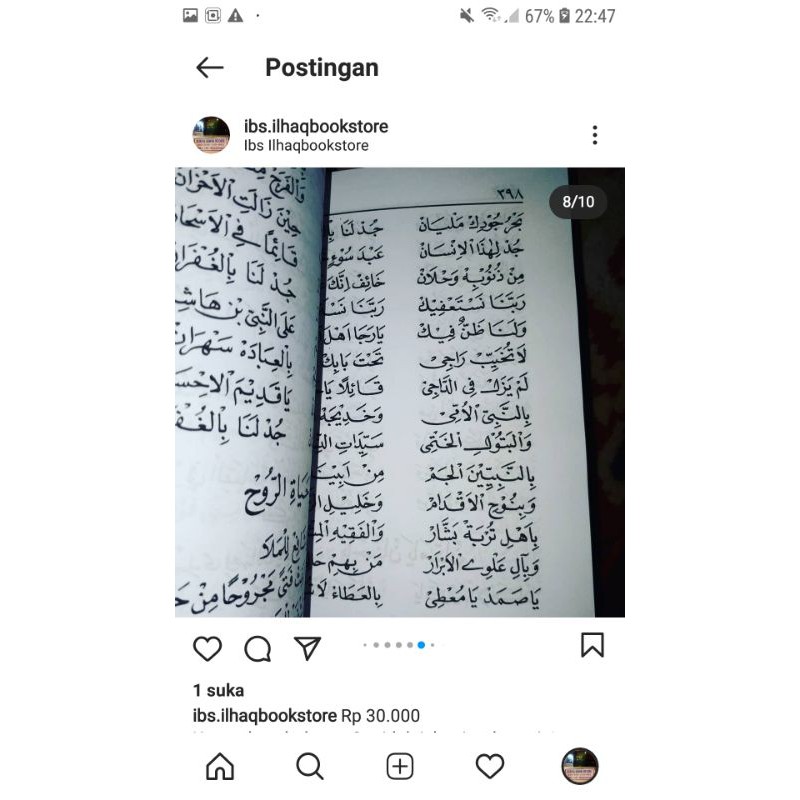 67% 22:47
Postingan
ibs.ilhaqbookstore
Ibs Ilhaqbookstore
8/10
٣٩٨
بَحْرُ جُوْدِكْ مَلْيَانْ جُدْ لَنَا
جُدْ لِهٰذَا الْاِنْسَانْ عَبْدِ سُوْءٍ
مِنْ ذُنُوْبِهْ وَحْلَانْ خَائِفْ اِنَّكْ
رَبَّنَا نَسْتَعْفِيْكْ رَبَّنَا
وَلَنَا ظَنٌّ فِيْكْ يَارَجَا اَهْلِ
لَا تُخَيِّبْ رَاجِى تَحْتَ بَابِكْ
لَمْ يَزَلْ فِى الدَّاجِى قَائِلًا
بِالنَّبِيِّ الْاُمِّى وَخَدِيْجَةْ
وَالْبَتُوْلِ الْخَتْمِى سَيِّدَاتِ
بِالنَّبِيِّيْنَ الْجَمْ مِنْ
وَبِنُوْحِ الْاَقْدَامْ وَخَلِيْلِ
بِاَهْلِ تُرْبَةْ بَشَّارْ وَالْفَقِيْهِ
وَبِآلِ عَلَوِى الْاَبْرَارْ مَنْ بِهِمْ
يَا صَمَدْ يَا مُعْطِىْ بِالْعَطَاءْ
حِيْنَ زَالَتِ الْاَحْزَانْ
قَائِمًا فِى
جُدْ لَنَا
عَلَى النَّبِيّ بْنِ
بِالْعِبَادَةْ سَهْرَانْ
يَا قَدِيْمَ
جُدْ لَنَا
الرُّوْحِ
مَجْرُوْحًا مِنْ
1 suka
ibs.ilhaqbookstore Rp 30.000